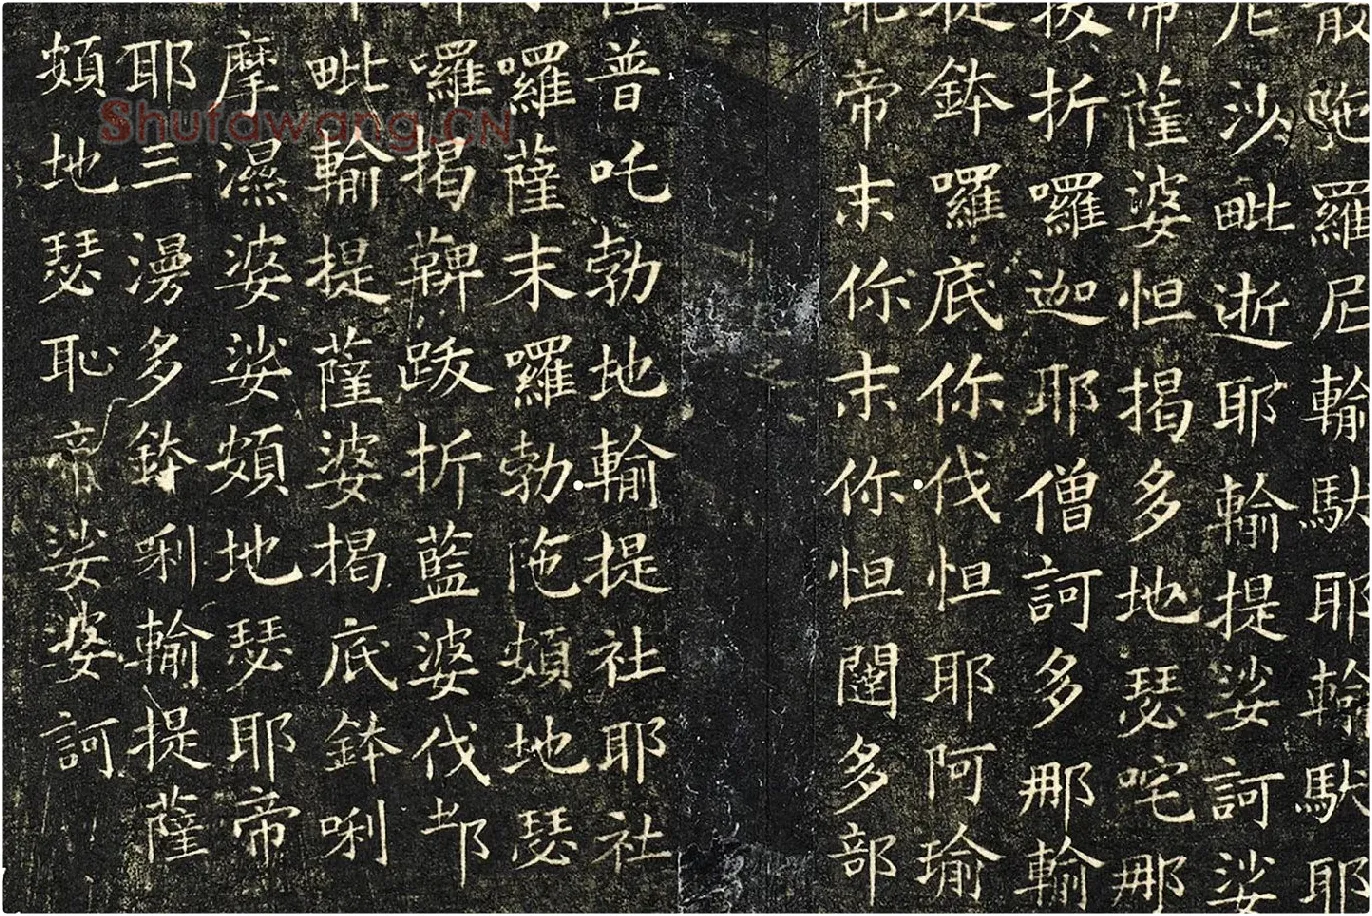 陁羅尼輸馱耶輸馱耶
尼沙毗逝耶輸提娑訶娑
帝薩婆怛揭多地瑟咤那
拔折囉迦耶僧訶多那輸
提鉢囉底你伐怛耶阿瑜
帝末你末你怛闥多部
普吒勃地輸提社耶社
囉薩末囉勃陁頞地瑟
囉揭鞞跋折藍婆伐都
毗輸提薩婆揭底鉢唎
摩濕婆娑頞地瑟耶帝
耶三漫多鉢唎輸提薩
頞地瑟恥帝娑婆訶
Shufawang.CN